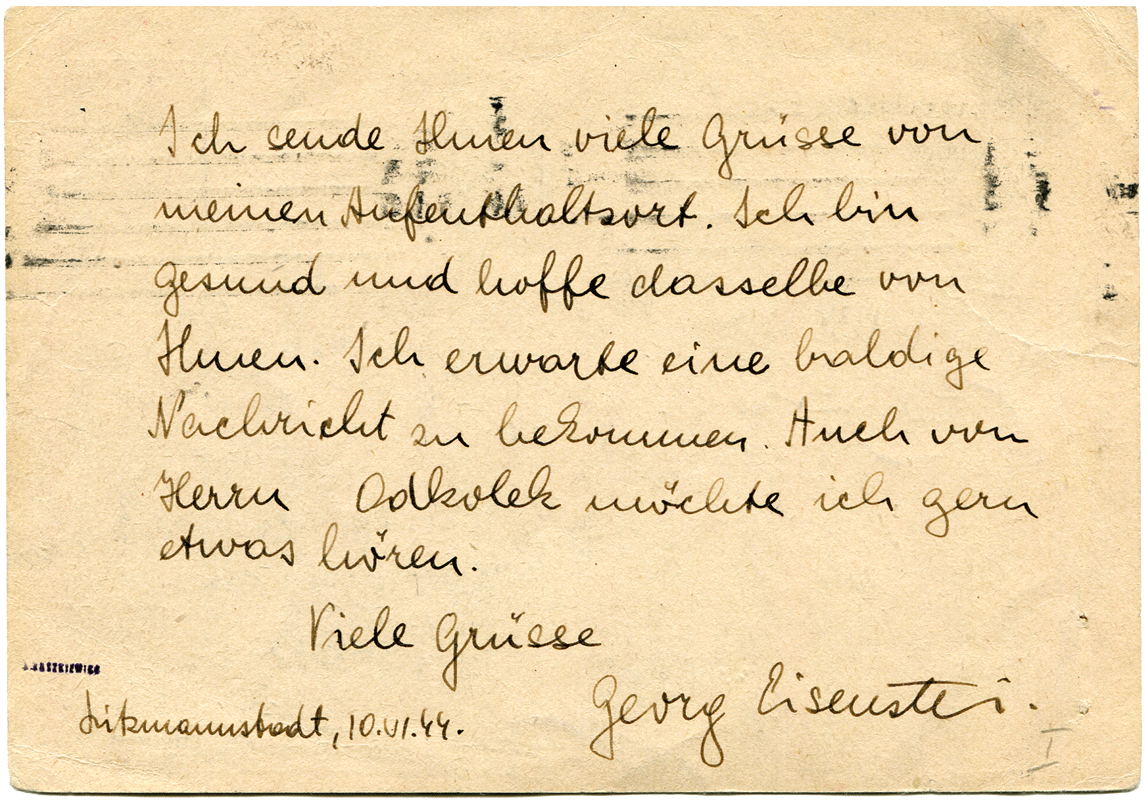 Ich sende Ihnen viele Grüsse von
meinen Aufenthaltsort. Ich bin
gesund und hoffe dasselbe von
Ihnen. Ich erwarte eine baldige
Nachricht zu bekommen. Auch von
Herrn Odkolek möchte ich gern
etwas hören.
Viele Grüsse
Georg
Litzmannstadt, 10.VI.44.
I